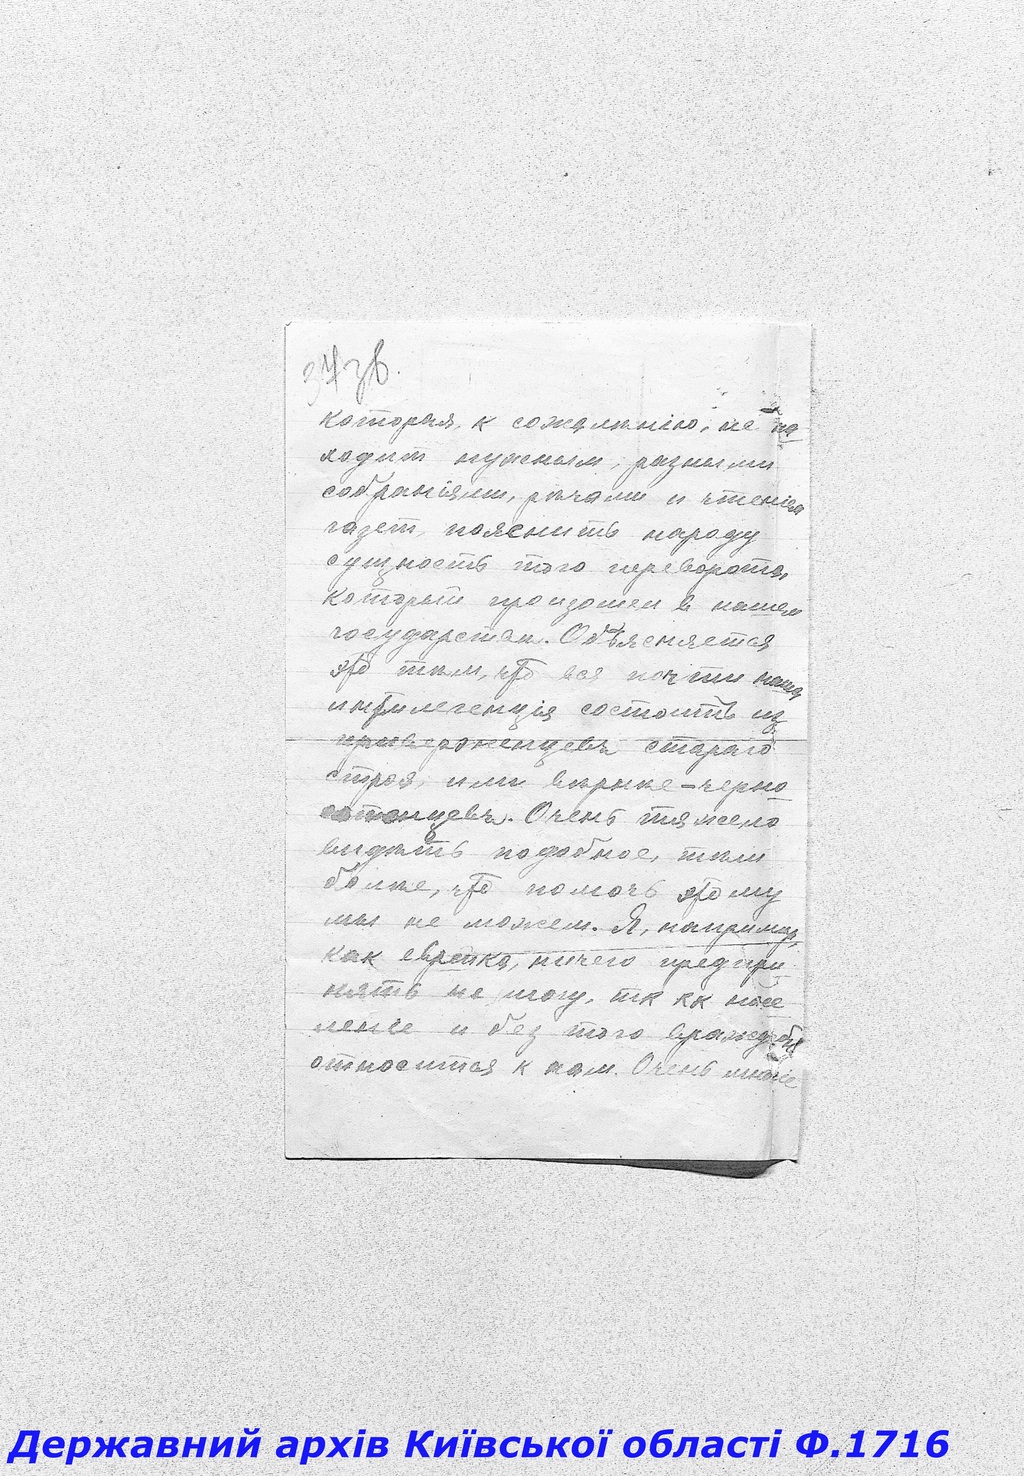 34зв.
которая, к сожалѣнію, не на
ходит нужным, разными
собраніями, рѣчами и чтеніем
газет, пояснить народу
сущность того переворота,
который произошел в нашем
государствѣ. Объясняется
это тѣм, что вся почти наша
интилегенція состоитъ из
приверженцевъ стараго
строя, или вѣрнѣе – черно
сотенцевъ. Очень тяжело
видѣть подобное, тѣм
болѣе, что помочь этому
мы не можем. Я, например,
как еврейка, ничего предпри
нять не могу, тк кк насе
леніе и без того враждебно
относится к нам. Очень многіе
Державний архів Київської області Ф.1716